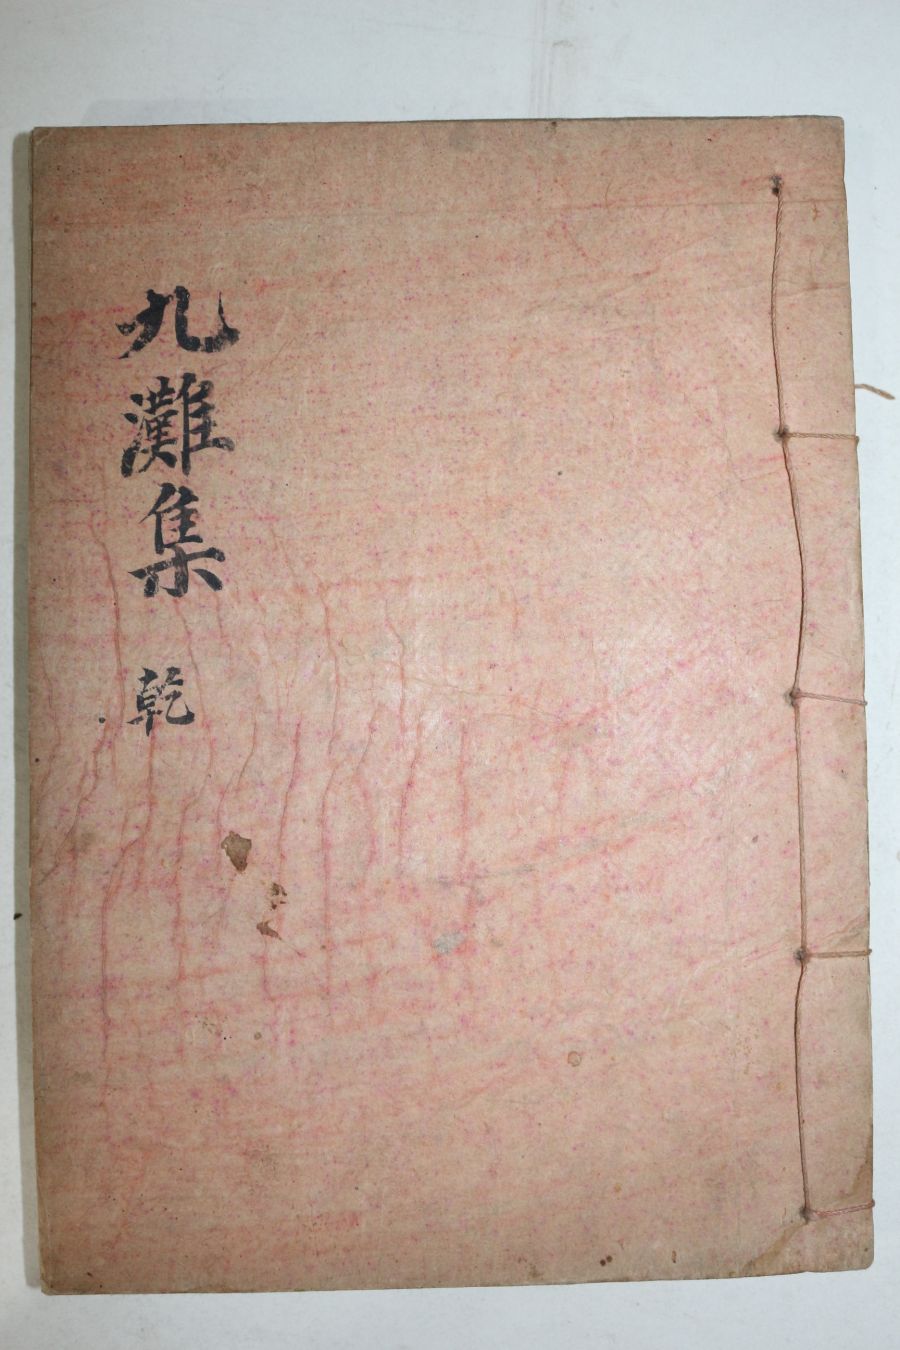 九灘集 乾